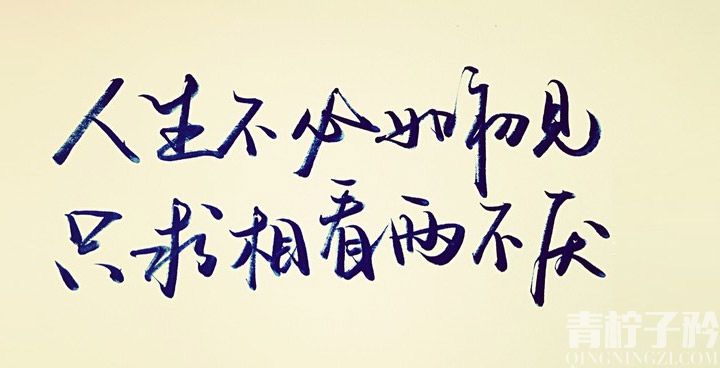 人生不必如初见
只求相看两不厌
青柠子矜
QINGNINGZI.COM